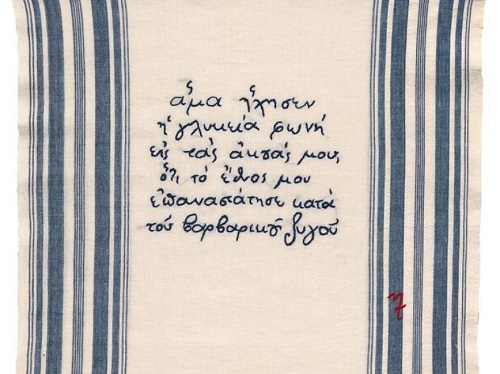 ἅμα ἤχησεν
ἡ γλυκεία φωνή
εις τάς ακοάς μου,
ὅτι τό ἔθνος μου
επαναστάτησε κατά
τού βαρβαρικού ζυγού